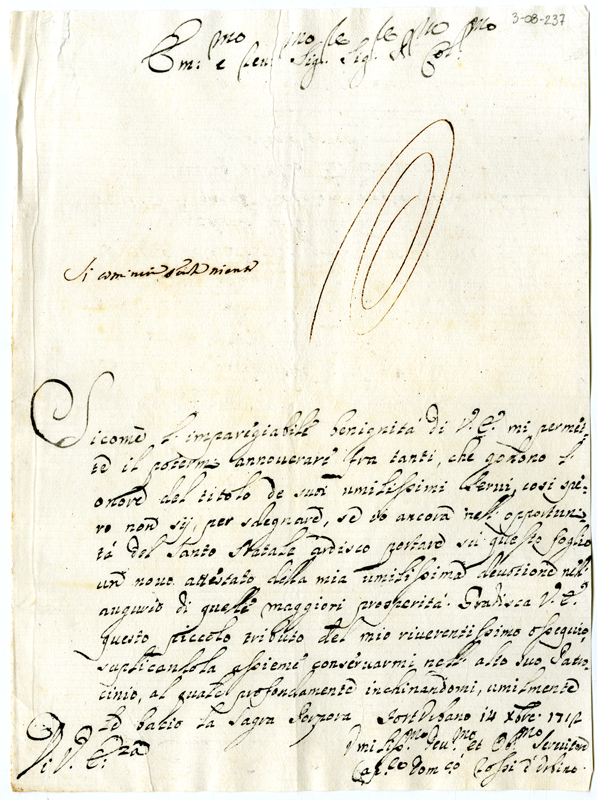 3-08-237
Em:mo e Reu:mo Sig:re Sig:re
Sicome l'impareggiabile benignità di V. E. mi permet-
te il potermi annouerare tra tanti, che godono l'
onore del titolo de suoi umilissimi Serui, così spe-
ro non sij, per sdegnare, se io ancora nell'opportuni-
tà del Santo Natale ardisco portare sù questo foglio
un nouo attestato della mia umilissima deuotione nell'
augurio di quelle maggiori prosperità. Gradisca V. E.
questo piccolo tributo del mio riuerentissimo ossequio
suplicandola assieme conseruarmi nell'alto suo Patro-
cinio, al quale profondamente inchinandomi, umilmente
le bacio la Sagra Porpora Fort'Urbano 14 Xbre 1712
Di V. E.za Umiliss:mo Deu:mo et Ob:mo Seruitore